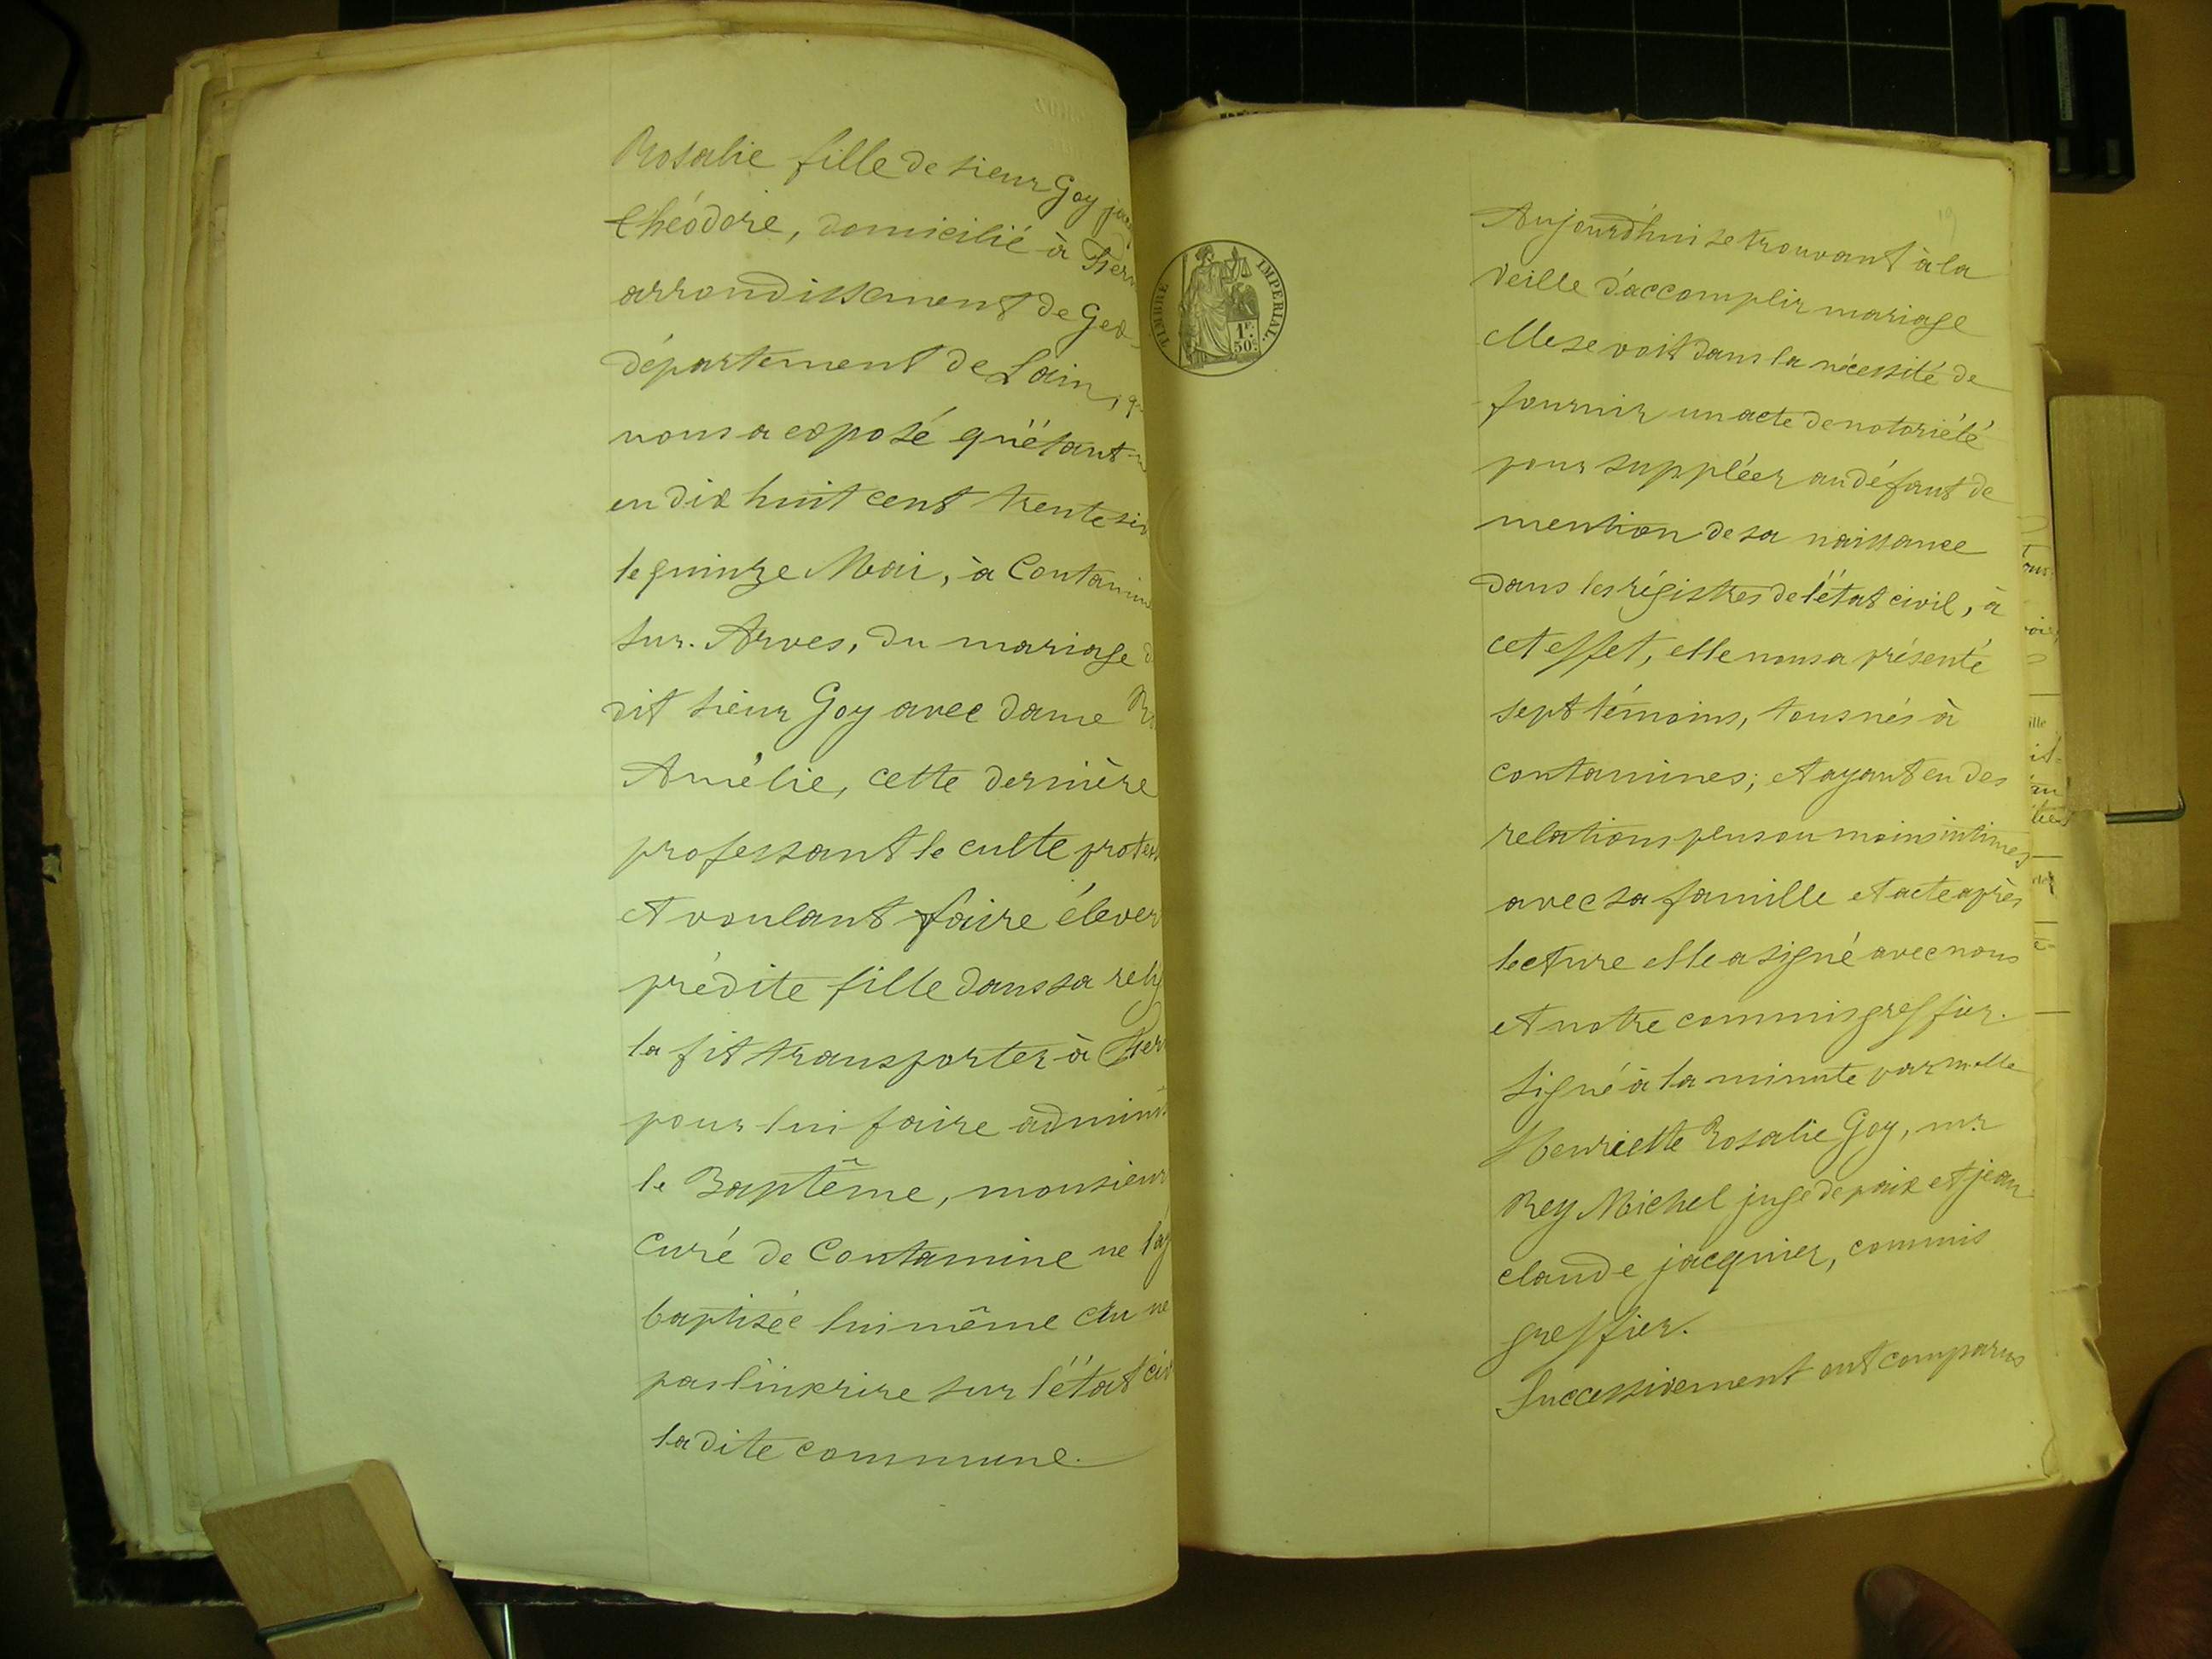 Rosalie fille de sieur Goy
théodore, domicilié à
arrondissement de Gex
département de Lain,
nous a exposé qu'étant
en dix huit cent trente
le quinze Mai, à
sur. Arves, du mariage
dit sieur Goy avec dame
Amélie, cette dernière
professant le culte
et voulant faire élever
prédite fille dans sa
la fit transporter à
pour lui faire
le Baptême, monsieur
Curé de Contamine ne
baptisée lui même
pas l'inscrire sur l'état
la dite commune.
TIMBRE IMPERIAL.
1F.
50C.
19
Aujourd'hui se trouvant à la
veille d'accomplir mariage
elle se voit dans la nécessité de
fournir un acte de notoriété
pour suppléer au défaut de
mention de sa naissance
dans les régistres de l'état civil, à
cet effet, elle nous a présenté
sept témoins, tous nés à
contamines; et ayant eu des
relations plus ou moins intimes
avec sa famille et acte après
lecture elle a signé avec nous
et notre commis greffier.
Signé à la minute par melle
Henriette Rosalie Goy, mr
Rey Michel juge de paix et jean
claude jacquier, commis
greffier.
Successivement ont comparus